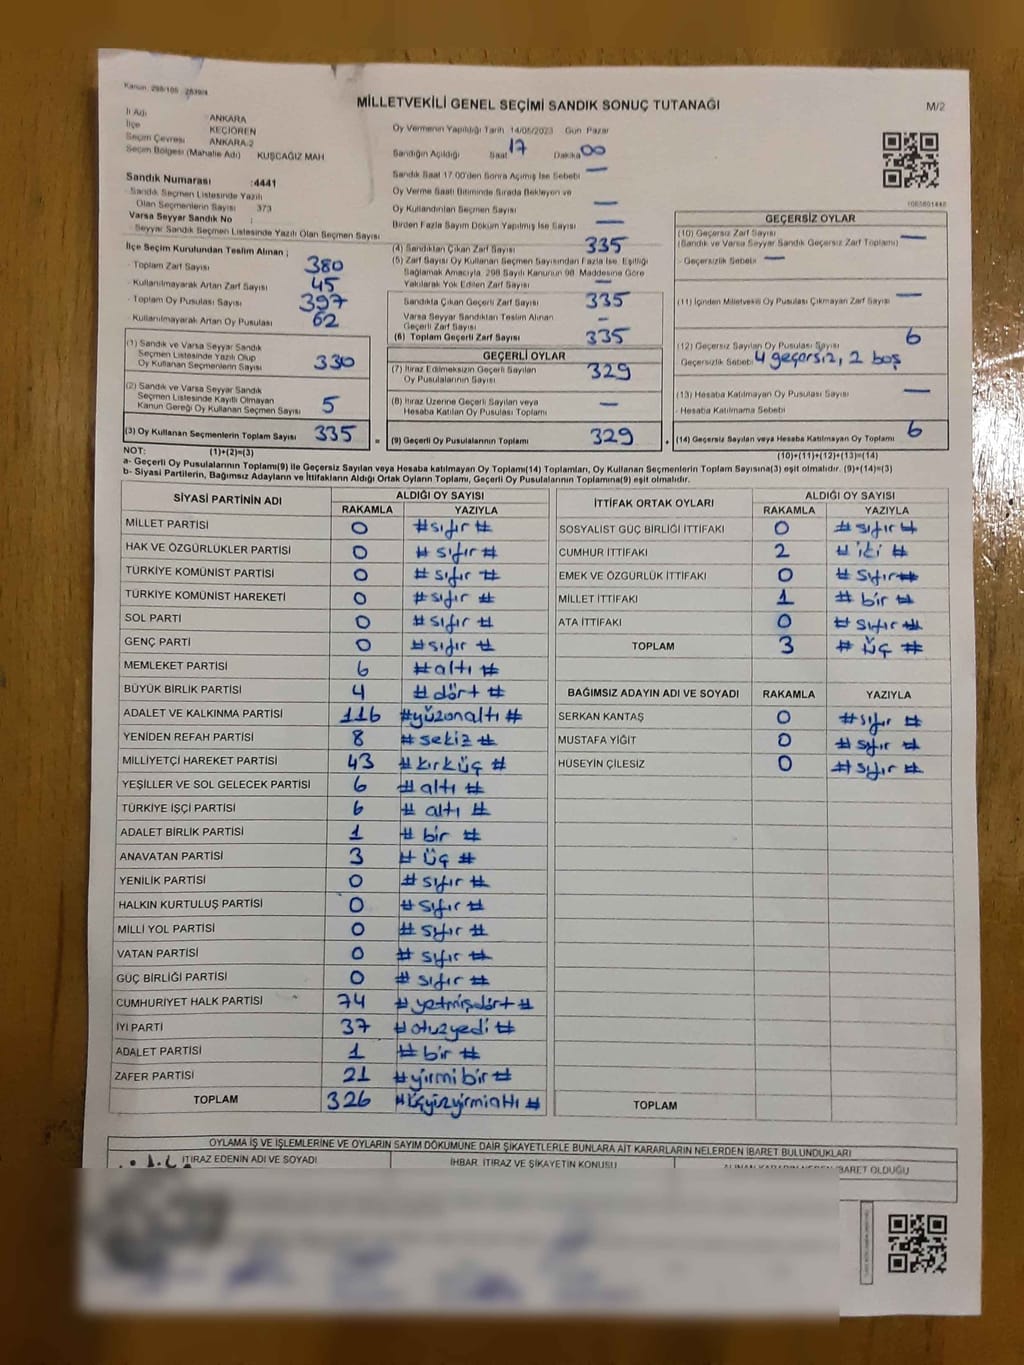 Kanun: 298/105 - 2839/4
MİLLETVEKİLİ GENEL SEÇİMİ SANDIK SONUÇ TUTANAĞI
M/2
İl Adı ANKARA
İlçe KEÇİÖREN
Seçim Çevresi ANKARA-2
Seçim Bölgesi (Mahalle Adı) KUŞCAĞIZ MAH
Sandık Numarası :4441
Sandık Seçmen Listesinde Yazılı
Olan Seçmenlerin Sayısı 373
Varsa Seyyar Sandık No :
Seyyar Sandık Seçmen Listesinde Yazılı Olan Seçmen Sayısı
Oy Vermenin Yapıldığı Tarih 14/05/2023 Gün Pazar
Sandığın Açıldığı Saat 17 Dakika 00
Sandık Saat 17.00'den Sonra Açımış İse Sebebi —
Oy Verme Saati Bitiminde Sırada Bekleyen ve
Oy Kullandırılan Seçmen Sayısı —
Birden Fazla Sayım Döküm Yapılmış İse Sayısı —
İlçe Seçim Kurulundan Teslim Alınan ;
- Toplam Zarf Sayısı 380
- Kullanılmayarak Artan Zarf Sayısı 45
- Toplam Oy Pusulası Sayısı 397
- Kullanılmayarak Artan Oy Pusulası 62
(1) Sandık ve Varsa Seyyar Sandık
Seçmen Listesinde Yazılı Olup
Oy Kullanan Seçmenlerin Sayısı 330
(2) Sandık ve Varsa Seyyar Sandık
Seçmen Listesinde Kayıtlı Olmayan
Kanun Gereği Oy Kullanan Seçmen Sayısı 5
(3) Oy Kullanan Seçmenlerin Toplam Sayısı 335
(4) Sandıktan Çıkan Zarf Sayısı 335
(5) Zarf Sayısı Oy Kullanan Seçmen Sayısından Fazla İse, Eşitliği
Sağlamak Amacıyla, 298 Sayılı Kanunun 98. Maddesine Göre
Yakılarak Yok Edilen Zarf Sayısı —
Sandıkta Çıkan Geçerli Zarf Sayısı 335
Varsa Seyyar Sandıktan Teslim Alınan
Geçerli Zarf Sayısı —
(6) Toplam Geçerli Zarf Sayısı 335
GEÇERLİ OYLAR
(7) İtiraz Edilmeksizin Geçerli Sayılan
Oy Pusulalarının Sayısı 329
(8) İtiraz Üzerine Geçerli Sayılan veya
Hesaba Katılan Oy Pusulası Toplamı —
= (9) Geçerli Oy Pusulalarının Toplamı 329
1065601446
GEÇERSİZ OYLAR
(10) Geçersiz Zarf Sayısı —
(Sandık ve Varsa Seyyar Sandık Geçersiz Zarf Toplamı)
- Geçersizlik Sebebi —
(11) İçinden Milletvekili Oy Pusulası Çıkmayan Zarf Sayısı —
(12) Geçersiz Sayılan Oy Pusulası Sayısı 6
Geçersizlik Sebebi 4 geçersiz, 2 boş
(13) Hesaba Katılmayan Oy Pusulası Sayısı —
- Hesaba Katılmama Sebebi
+ (14) Geçersiz Sayılan veya Hesaba Katılmayan Oy Toplamı 6
NOT: (1)+(2)=(3)
(10)+(11)+(12)+(13)=(14)
a- Geçerli Oy Pusulalarının Toplamı(9) ile Geçersiz Sayılan veya Hesaba katılmayan Oy Toplamı(14) Toplamları, Oy Kullanan Seçmenlerin Toplam Sayısına(3) eşit olmalıdır. (9)+(14)=(3)
b- Siyasi Partilerin, Bağımsız Adayların ve İttifakların Aldığı Ortak Oyların Toplamı, Geçerli Oy Pusulalarının Toplamına(9) eşit olmalıdır.
SİYASİ PARTİNİN ADI ALDIĞI OY SAYISI
RAKAMLA YAZIYLA
MİLLET PARTİSİ 0 #sıfır#
HAK VE ÖZGÜRLÜKLER PARTİSİ 0 #sıfır#
TÜRKİYE KOMÜNİST PARTİSİ 0 #sıfır#
TÜRKİYE KOMÜNİST HAREKETİ 0 #sıfır#
SOL PARTİ 0 #sıfır#
GENÇ PARTİ 0 #sıfır#
MEMLEKET PARTİSİ 6 #altı#
BÜYÜK BİRLİK PARTİSİ 4 #dört#
ADALET VE KALKINMA PARTİSİ 116 #yüzonaltı#
YENİDEN REFAH PARTİSİ 8 #sekiz#
MİLLİYETÇİ HAREKET PARTİSİ 43 #kırküç#
YEŞİLLER VE SOL GELECEK PARTİSİ 6 #altı#
TÜRKİYE İŞÇİ PARTİSİ 6 #altı#
ADALET BİRLİK PARTİSİ 1 #bir#
ANAVATAN PARTİSİ 3 #üç#
YENİLİK PARTİSİ 0 #sıfır#
HALKIN KURTULUŞ PARTİSİ 0 #sıfır#
MİLLİ YOL PARTİSİ 0 #sıfır#
VATAN PARTİSİ 0 #sıfır#
GÜÇ BİRLİĞİ PARTİSİ 0 #sıfır#
CUMHURİYET HALK PARTİSİ 74 #yetmişdört#
İYİ PARTİ 37 #otuzyedi#
ADALET PARTİSİ 1 #bir#
ZAFER PARTİSİ 21 #yirmibir#
TOPLAM 326 #üçyüzyirmialtı#
İTTİFAK ORTAK OYLARI ALDIĞI OY SAYISI
RAKAMLA YAZIYLA
SOSYALİST GÜÇ BİRLİĞİ İTTİFAKI 0 #sıfır#
CUMHUR İTTİFAKI 2 #iki#
EMEK VE ÖZGÜRLÜK İTTİFAKI 0 #sıfır#
MİLLET İTTİFAKI 1 #bir#
ATA İTTİFAKI 0 #sıfır#
TOPLAM 3 #üç#
BAĞIMSIZ ADAYIN ADI VE SOYADI RAKAMLA YAZIYLA
SERKAN KANTAŞ 0 #sıfır#
MUSTAFA YİĞİT 0 #sıfır#
HÜSEYİN ÇİLESİZ 0 #sıfır#
TOPLAM
OYLAMA İŞ VE İŞLEMLERİNE VE OYLARIN SAYIM DÖKÜMÜNE DAİR ŞİKAYETLERLE BUNLARA AİT KARARLARIN NELERDEN İBARET BULUNDUKLARI
İTİRAZ EDENİN ADI VE SOYADI İHBAR, İTİRAZ VE ŞİKAYETİN KONUSU ALINAN KARARIN NEDEN İBARET OLDUĞU